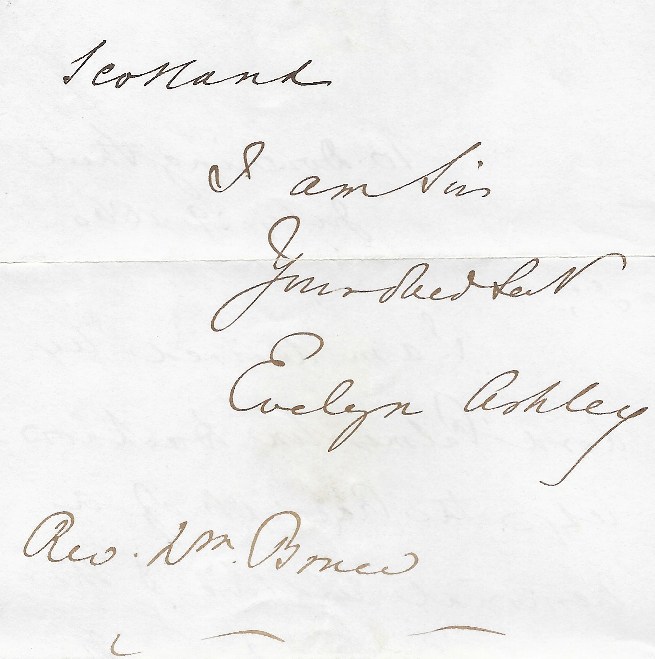 Scotland
I am Sir
Your Obed Sert
Evelyn Ashley
Rev. Wm. Bruce